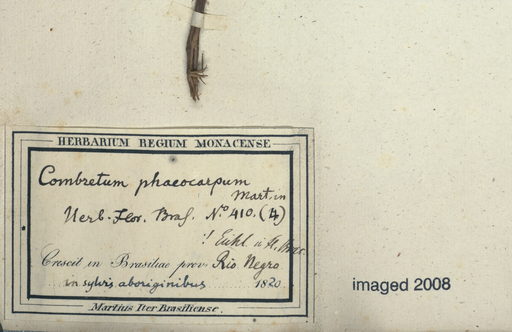 HERBARIUM REGIUM MONACENSE
Combretum phaeocarpum
Mart. in
Herb. Flor. Bras. Nº 410. (4)
! Eichl. in
Crescit in Brasiliae prov. Rio Negro
in sylvis aboriginibus 1820
Martius Iter Brasiliense.
imaged 2008